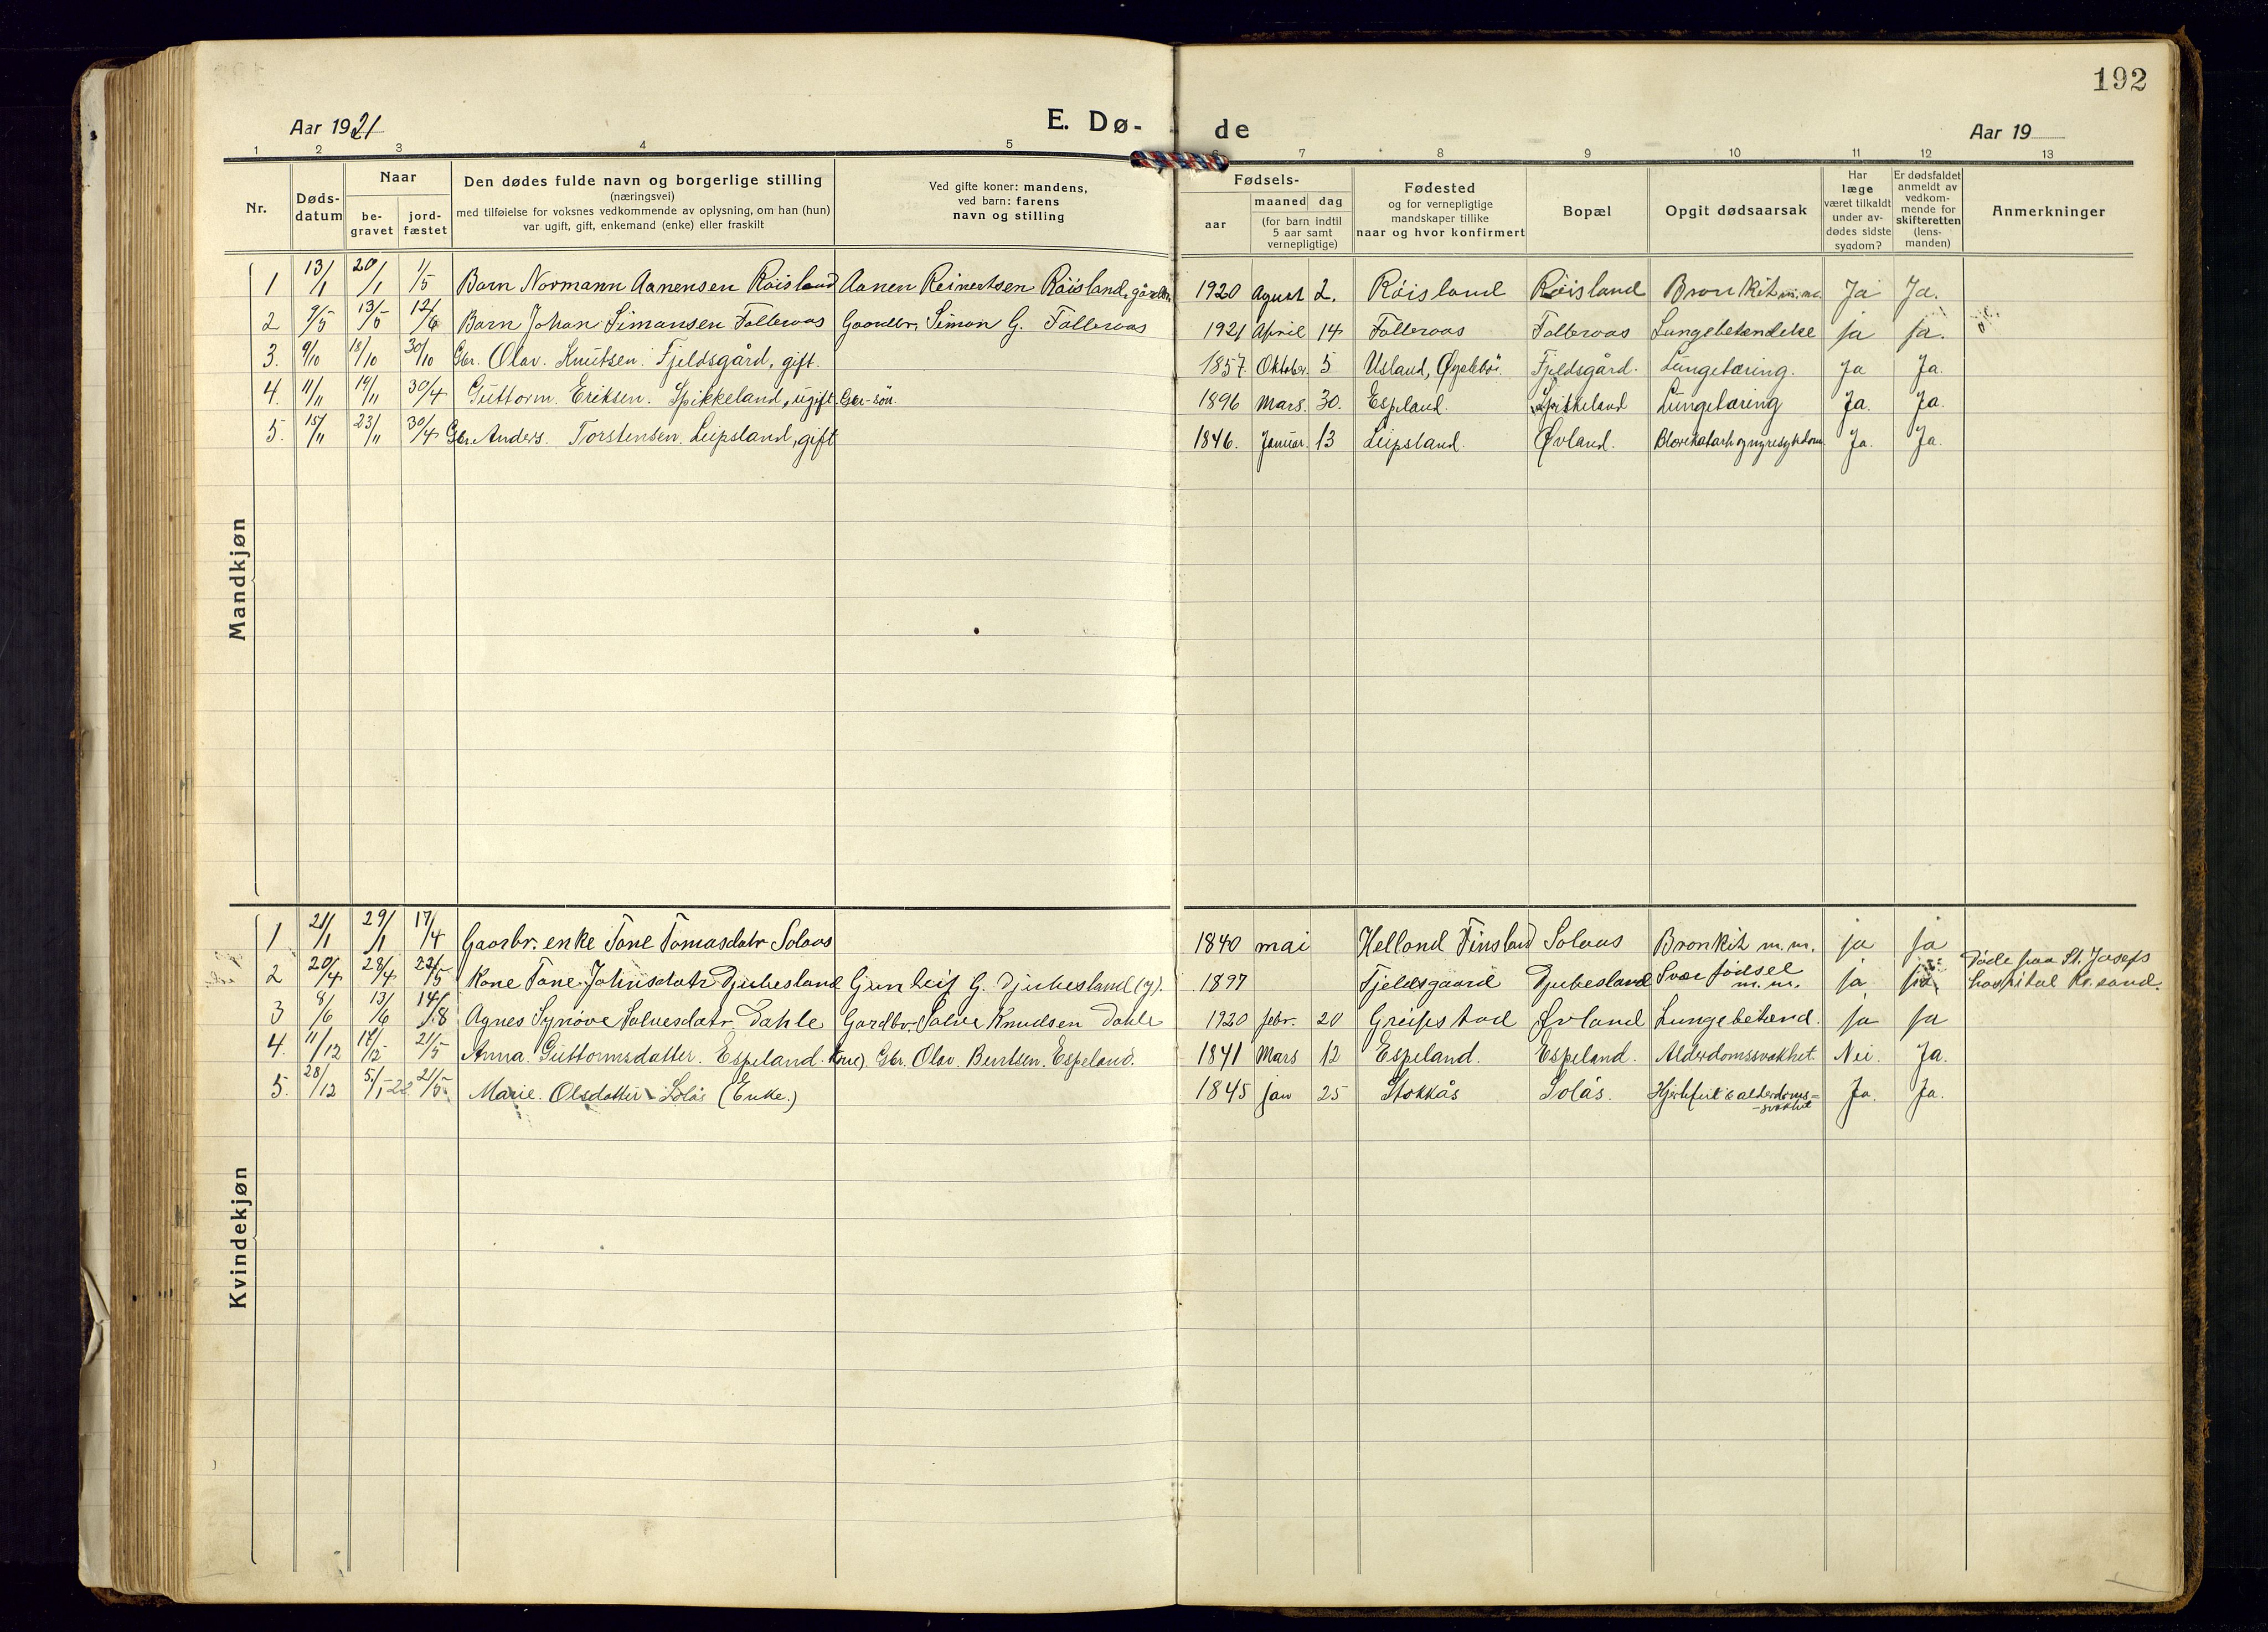 192
Aar 1921
E. Dø-
de
Aar 19
1 2 3 4 5 6 7 8 9 10 11 12 13
Nr.
Døds-
datum
Naar
be-
gravet
jord-
fæstet
Den dødes fulde navn og borgerlige stilling
(næringsvei)
med tilføielse for voksnes vedkommende av oplysning, om han (hun)
var ugift, gift, enkemand (enke) eller fraskilt
Ved gifte koner: mandens,
ved barn: farens
navn og stilling
Fødsels-
aar
maaned dag
(for barn indtil
5 aar samt
vernepligtige)
Fødested
og for vernepligtige
mandskaper tillike
naar og hvor konfirmert
Bopæl
Opgit dødsaarsak
Har
læge
været tilkaldt
under av-
dødes sidste
sygdom?
Er dødsfaldet
anmeldt av
vedkom-
mende for
skifteretten
(lens-
manden)
Anmerkninger
Mandkjøn
1 13/1 20/1 1/5 Barn Normann Aanensen Røisland Aanen Reinertsen Røisland, 1920 Agust 2. Røisland Røisland Bronkit m.m. Ja Ja.
2 7/5 13/5 12/6 Barn Johan Simansen Falleraas Gaardbr. Simon G. Falleraas 1921 April 14 Falleraas Falleraas Lungebetændelse ja ja.
3. 9/10 18/10 30/10 Gbr. Olav. Knutsen. Fjeldsgård, gift. 1857. Oktober. 5 Usland, Øvrebö. Fjeldsgård. Lungetæring. Ja Ja.
4. 11/11 19/11 30/4 Guttorm. Eriksen. Spikkeland, ugift. Gbr-sön. 1896 Mars. 30. Espeland. Spikkeland Lungetæring Ja. Ja.
5. 15/11 23/11 30/4 Gbr. Anders. Torstensen. Leipsland, gift 1846. Januar. 13 Leipsland. Øvland. Blærekatarh og nyresykdom Ja. Ja.
Kvindekjøn
1 21/1 29/1 17/4 Gaarbr. enke Tone Tomasdatr Solaas 1840 mai Helland Finsland Solaas Bronkit m.m. ja ja
2 20/4 28/4 22/5 Kone Tone Johnsdatr Djubesland Gunleif G. Djubesland (g). 1897 Fjeldsgaard Djubesland Svær fødsel m.m. ja ja Døde paa St. Josefs
hospital Kr.sand.
3 8/6 13/6 14/8 Agnes Synøve Salvesdatr. Dahle Gardbr. Salve Knudsen Dahle 1920 febr. 20 Greipstad Øvland Lungebetænd. ja ja
4. 11/12 17/12 21/5 Anna. Guttormsdatter. Espeland. Gbr. Olav. Bentsen. Espeland. 1841 Mars 12 Espeland. Espeland. Alderdomssvakhet. Nei. Ja.
5. 28/12 5/1-22 21/5 Marie. Olsdatter Solås (Enke.) 1845 jan 25 Stokkås Solås. Hjertefeil & alderdoms-
-svakhet Ja. Ja.